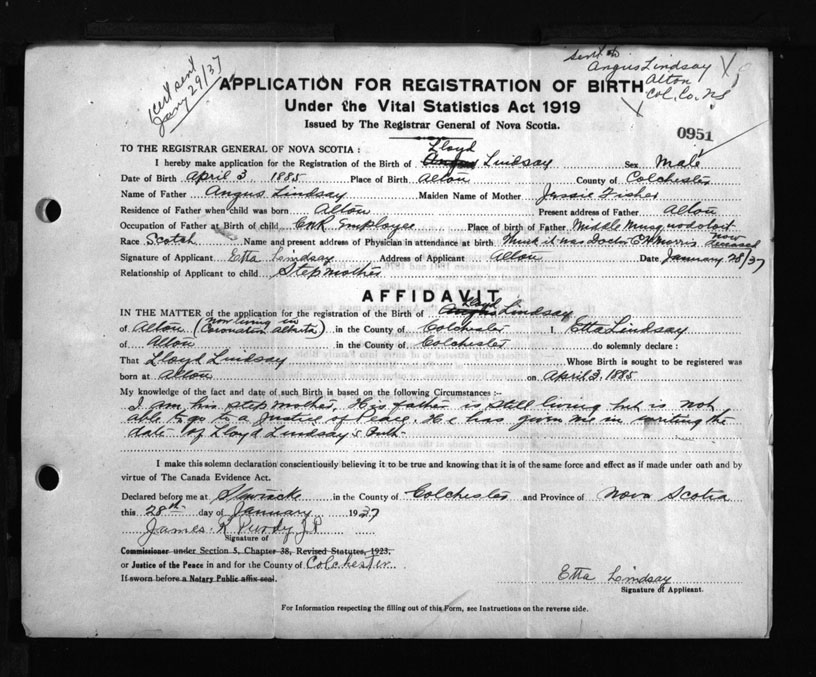 Cert sent
Jany 29/37
sent to
Angus Lindsay
Alton
Col. Co. NS
APPLICATION FOR REGISTRATION OF BIRTH
Under the Vital Statistics Act 1919
Issued by The Registrar General of Nova Scotia.
0951
TO THE REGISTRAR GENERAL OF NOVA SCOTIA :
I hereby make application for the Registration of the Birth of Angus Lloyd Lindsay Sex Male
Date of Birth April 3 1885 Place of Birth Alton County of Colchester
Name of Father Angus Lindsay Maiden Name of Mother Jessie Fisher
Residence of Father when child was born Alton Present address of Father Alton
Occupation of Father at Birth of child CNR Employee Place of birth of Father Middle Musquodoboit
Race Scotch Name and present address of Physician in attendance at birth it was Doctor Morris now deceased
Signature of Applicant Etta Lindsay Address of Applicant Alton Date January 28/37
Relationship of Applicant to child Step mother
AFFIDAVIT
IN THE MATTER of the application for the registration of the Birth of Angus Lloyd Lindsay
of Alton (now living in Coronation Alberta) in the County of Colchester I, Etta Lindsay
of Alton in the County of Colchester do solemnly declare :
That Lloyd Lindsay Whose Birth is sought to be registered was
born at Alton on April 3. 1885
My knowledge of the fact and date of such Birth is based on the following Circumstances :—
I am his step mother, His father is still living but is not
able to go to a Justice of Peace. He has given me in writing the
date of Lloyd Lindsay's Birth
I make this solemn declaration conscientiously believing it to be true and knowing that it is of the same force and effect as if made under oath and by
virtue of The Canada Evidence Act.
Declared before me at Stewiacke in the County of Colchester and Province of Nova Scotia
this 28th day of January 1937
James R Purdy J.P
Signature of
Commissioner under Section 5, Chapter 38, Revised Statutes, 1923,
or Justice of the Peace in and for the County of Colchester
If sworn before a Notary Public affix seal.
Etta Lindsay
Signature of Applicant.
For Information respecting the filling out of this Form, see Instructions on the reverse side.